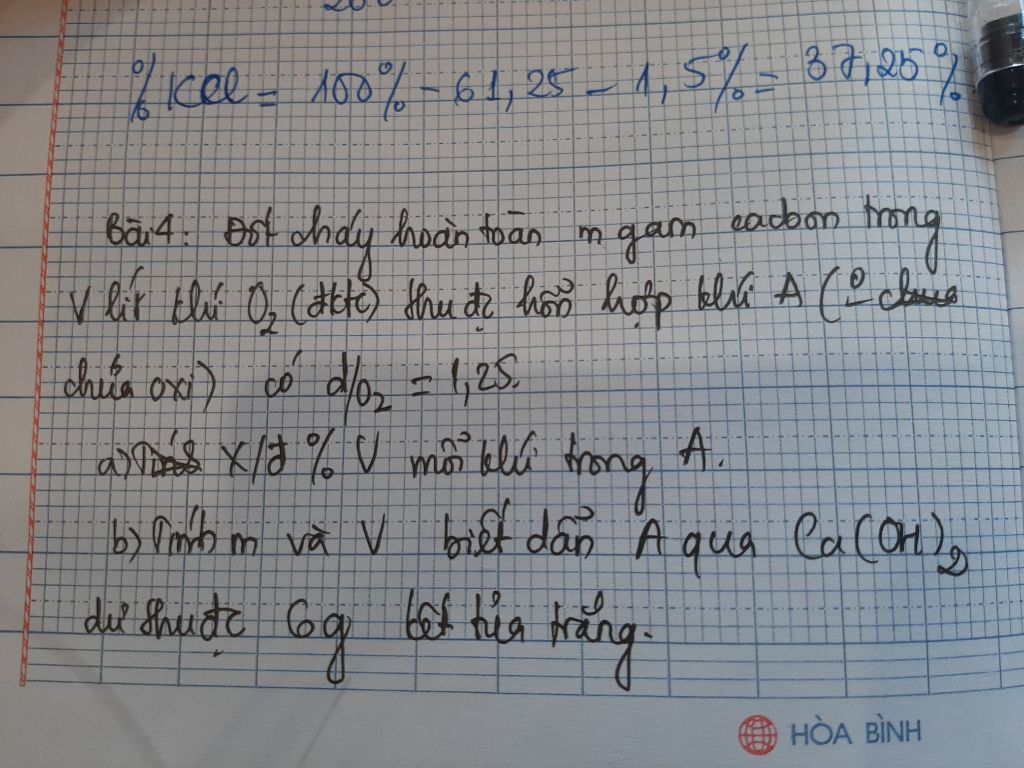 % KCl = 100% - 61,25 - 1,5% = 37,25%
Bài 4: Đốt cháy hoàn toàn m gam cacbon trong
V lít khí O₂ (đktc) thu đc hỗn hợp khí A (0
chứa oxi) có d/O₂ = 1,25.
a) X/đ % V mỗi khí trong A.
b) Tính m và V biết dẫn A qua Ca(OH)₂
dư thu đc 6g kết tủa trắng.
HÒA BÌNH